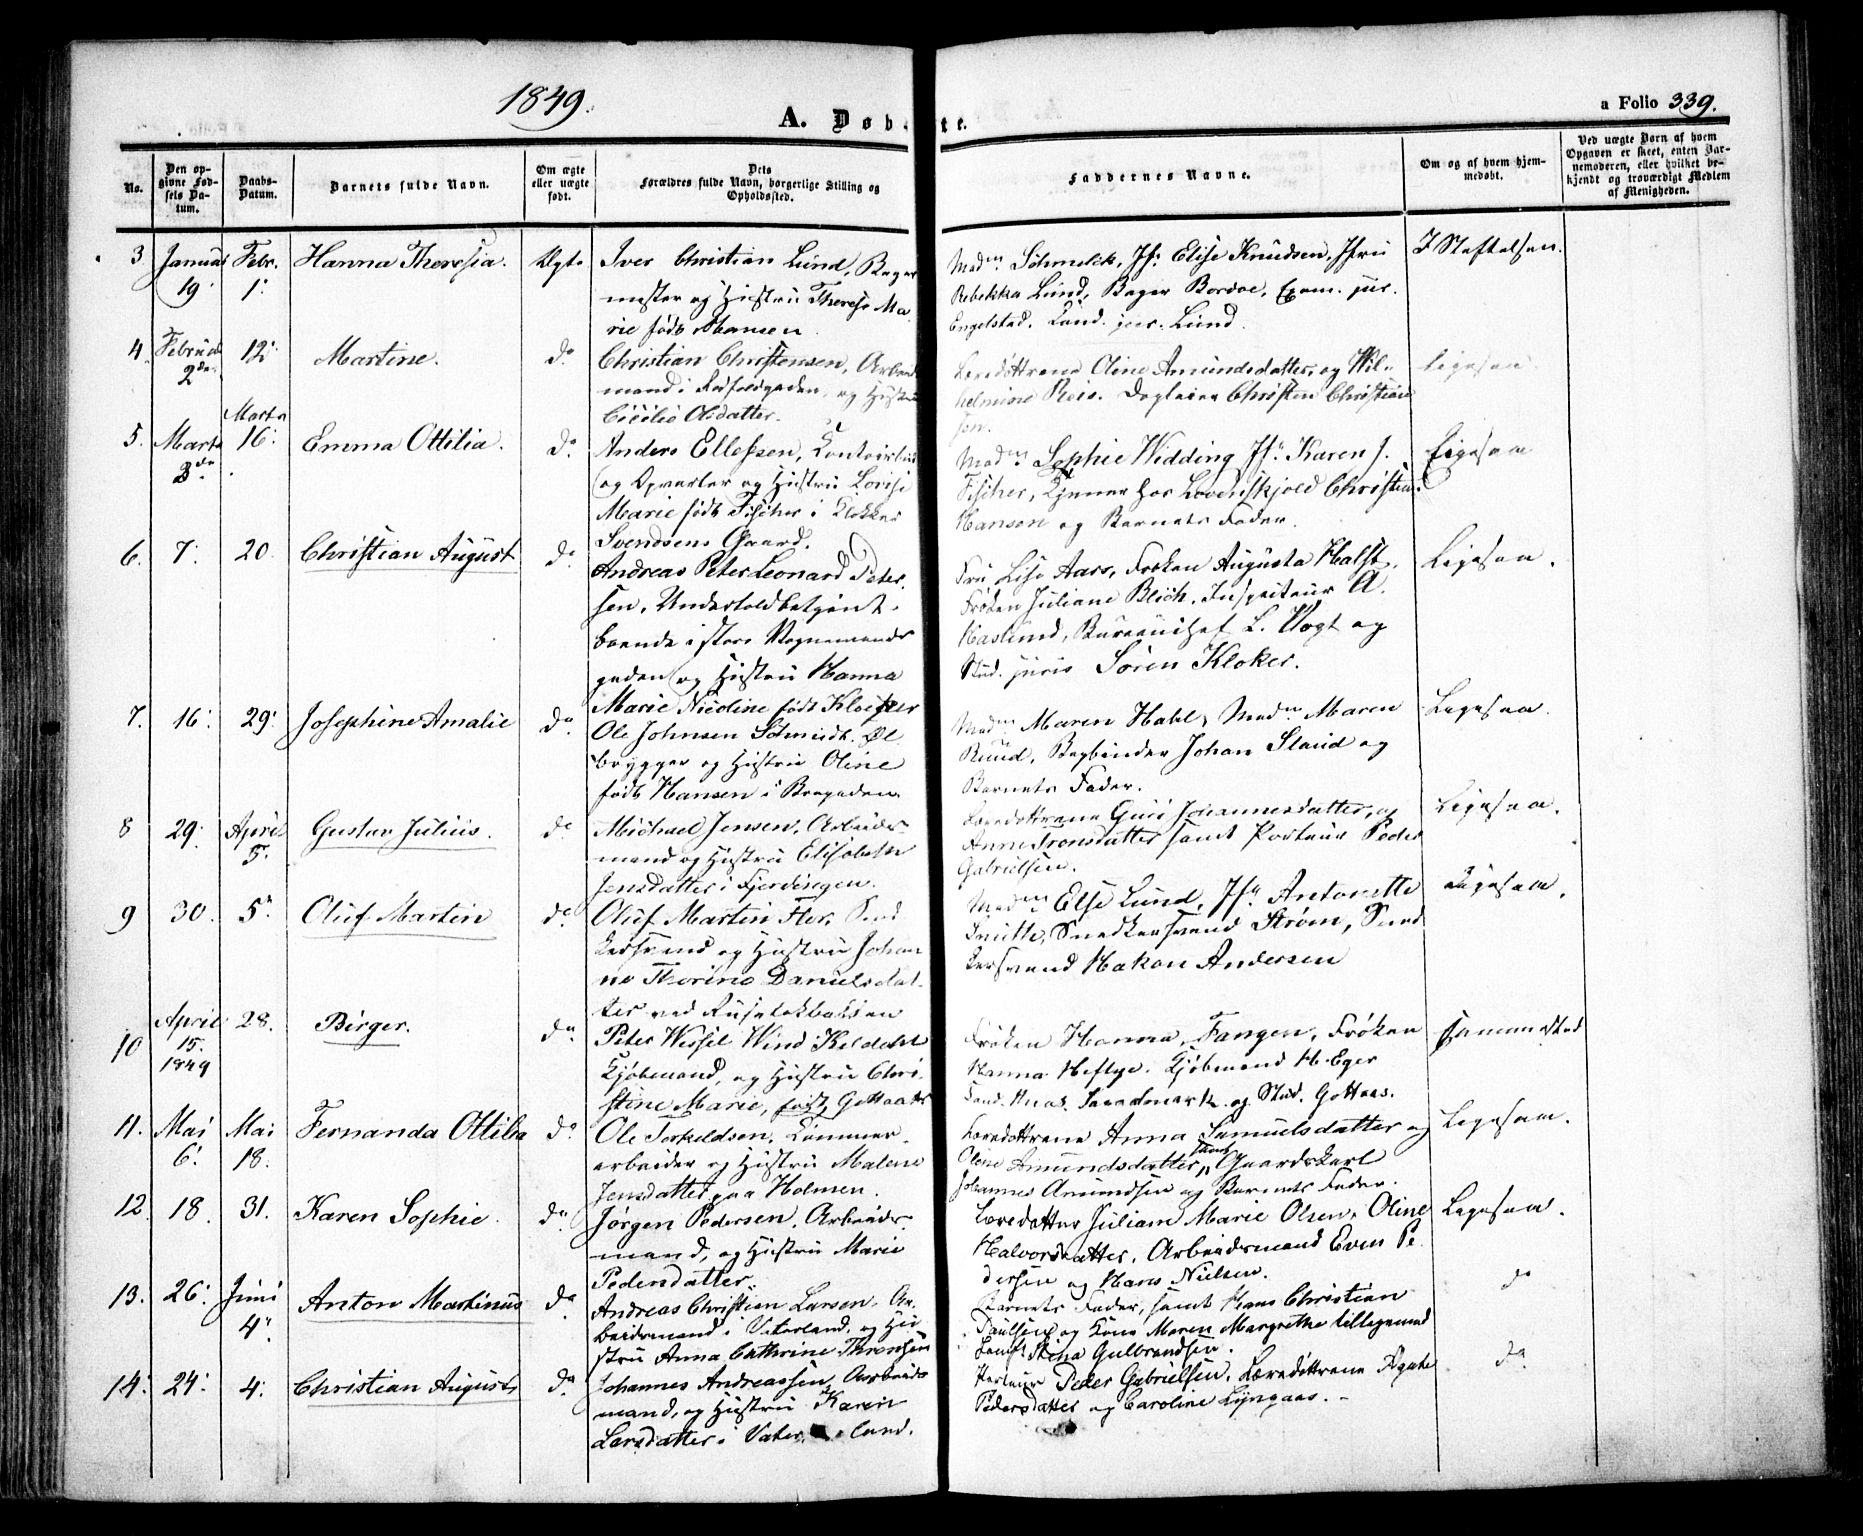 1849.
A. Døb te.
a Folio 339.
No.
Den opgivne Fødsels Datum.
Daabs-Datum.
Barnets fulde Navn.
Om ægte eller uægte født.
Dets Forældres fulde Navn, borgerlige Stilling og Opholdssted.
Faddernes Navne.
Om og af hvem hjemmedøbt.
Ved uægte Børn af hvem Opgaven er skeet, enten Barnemoderen, eller hvilket bekjendt og troværdigt Medlem af Menigheden.
3 Januar 19 Febr. 1. Hanna Theresia. Ægte
Iver Christian Lund, Bager
mester og Hustru Therese Ma
rie født Hansen.
Mad. Schmelck, Jfr. Elise Knudsen, Jfru
Rebekka Lund, Bager Bordoe, Exam. jur.
Engelstad, Cand. jur. Lund.
I Stiftelsen.
4. Februar 2den 12. Martine. do
Christian Christensen, Arbeids
mand i og Hustru
Cicilie Olsdatter.
Læredøttrene Oline Amundsdatter, og Wil-
helmine Reis. Dagleier Christen Christian
sen.
Ligesaa.
5. Marts 3die Marts 16. Emma Ottilia. do
Anders Ellefsen, Contoirbud
og Opvarter og Hustru Lovise
Marie født Fischer i Klokker
Svendsens Gaard.
Mad. Sophie Widding Jfr. Karen J.
Fischer, Tjener hos Løvenskjold Christian
Hansen og Barnets Fader.
Ligesaa
6. 7. 20. Christian August do
Andreas Peter Leonard Peter
sen, Undertoldbetjent,
boende i store Vognmands
gaden og Hustru Hanna
Marie Nicoline født Klocker
Fru Lise Aars, Frøken Augusta Holst,
Frøken Juliane Blich, Inspecteur A.
Haslund, Bureauchef L. Vogt og
Stud. juris Søren Kloker.
Ligesaa.
7. 16. 29. Josephine Amalie do
Ole Johnsen Schmidt. Øl
brygger og Hustru Oline
født Hansen i Brogaden.
Mad. Maren Hahl, Mad. Maren
Ruud, Bogbinder Johan Slaud og
Barnets Fader.
Ligesaa.
8 29. April 5. Gustav Julius. do
Michael Jensen, Arbeids-
mand og Hustru Elisabeth
Jensdatter i Fjerdingen.
Læredøttrene Guri Johannesdatter, og
Anne Tronsdatter samt Porteur Peder
Gabrielsen.
Ligesaa.
9 30. 5. Oluf Martin do
Oluf Martin Flor, Sned
kersvend og Hustru Johan
ne Thorine Danielsdat-
ter ved Ruseløkbakken
Mad. Else Lund, Jfr. Antonette
Snedkersvend Strøm, Sned
kersvend Hakon Andersen
Ligesaa.
10 April 15. 1849 28. Birger. do
Peter Wessel Wind Kildahl
Kjøbmand, og Hustru Chri-
stine Marie, født Gottaas
Frøken Hanna Fangen, Frøken
Hanna Heftye. Kjøbmand H. Eger
og Stud. Gottaas.
Sammested
11. Mai 6. Mai 18. Fernanda Ottilia do
Ole Torkeldsen, Tømmer-
arbeider og Hustru Malene
Jensdatter paa Holmen.
Læredøttrene Anna Samuelsdatter og
Oline Amundsdatter, samt Gaardskarl
Johannes Amundsen og Barnets Fader.
Ligesaa.
12. 18. 31. Karen Sophie. do
Jørgen Pedersen, Arbeids
mand, og Hustru Marie
Pedersdatter.
Læredatter Juliane Marie Olsen, Oline
Halvorsdatter, Arbeidsmand Even Pe
dersen og Hans Nielsen.
Ligesaa.
13. 26. Juni 4. Anton Martinus do
Andreas Christian Larsen, Ar-
beidsmand i Vaterland, og Hu
stru Anna Cathrine Thronsen
Barnets Fader, samt Hans Christian
Paulsen og Kone Maren Margrethe tilligemed
Stina Gulbrandsen.
do
14. 24. 4. Christian August. do
Johannes Andreassen, Arbeids
mand, og Hustru Karen
Larsdatter i Vater land.
Porteur Peder Gabrielsen, Læredøttrene Agate
Pedersdatter og Caroline Lyngaas.
do